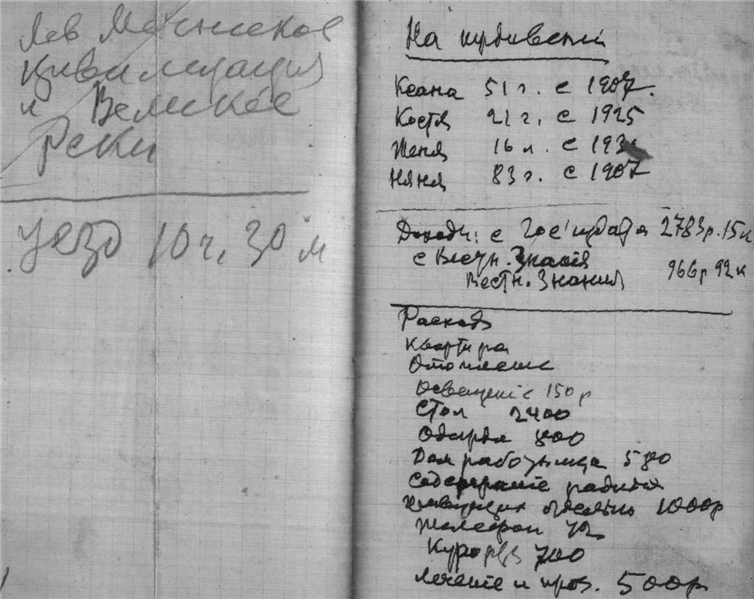 Лев Мечников
Цивилизация
и Великие
Реки
уезд 10 ч. 30 м
На
51 г. с 1907
Костя 21 г. с 1925
Женя 16 л. с 193
Няня 83 г. с 1907
Доходы: с Гос'издата 2783 р. 15 к
с Знания
Вестн. Знания 966 р 92 к
Расходы
Квартира
Отопление
Освещенiе 150 р
Стол 2400
Одежда 800
Дом работница 500
Содержанiе родных
отдельно 1000 р
Телефон
Курорт 700
Леченiе и проз. 500 р.